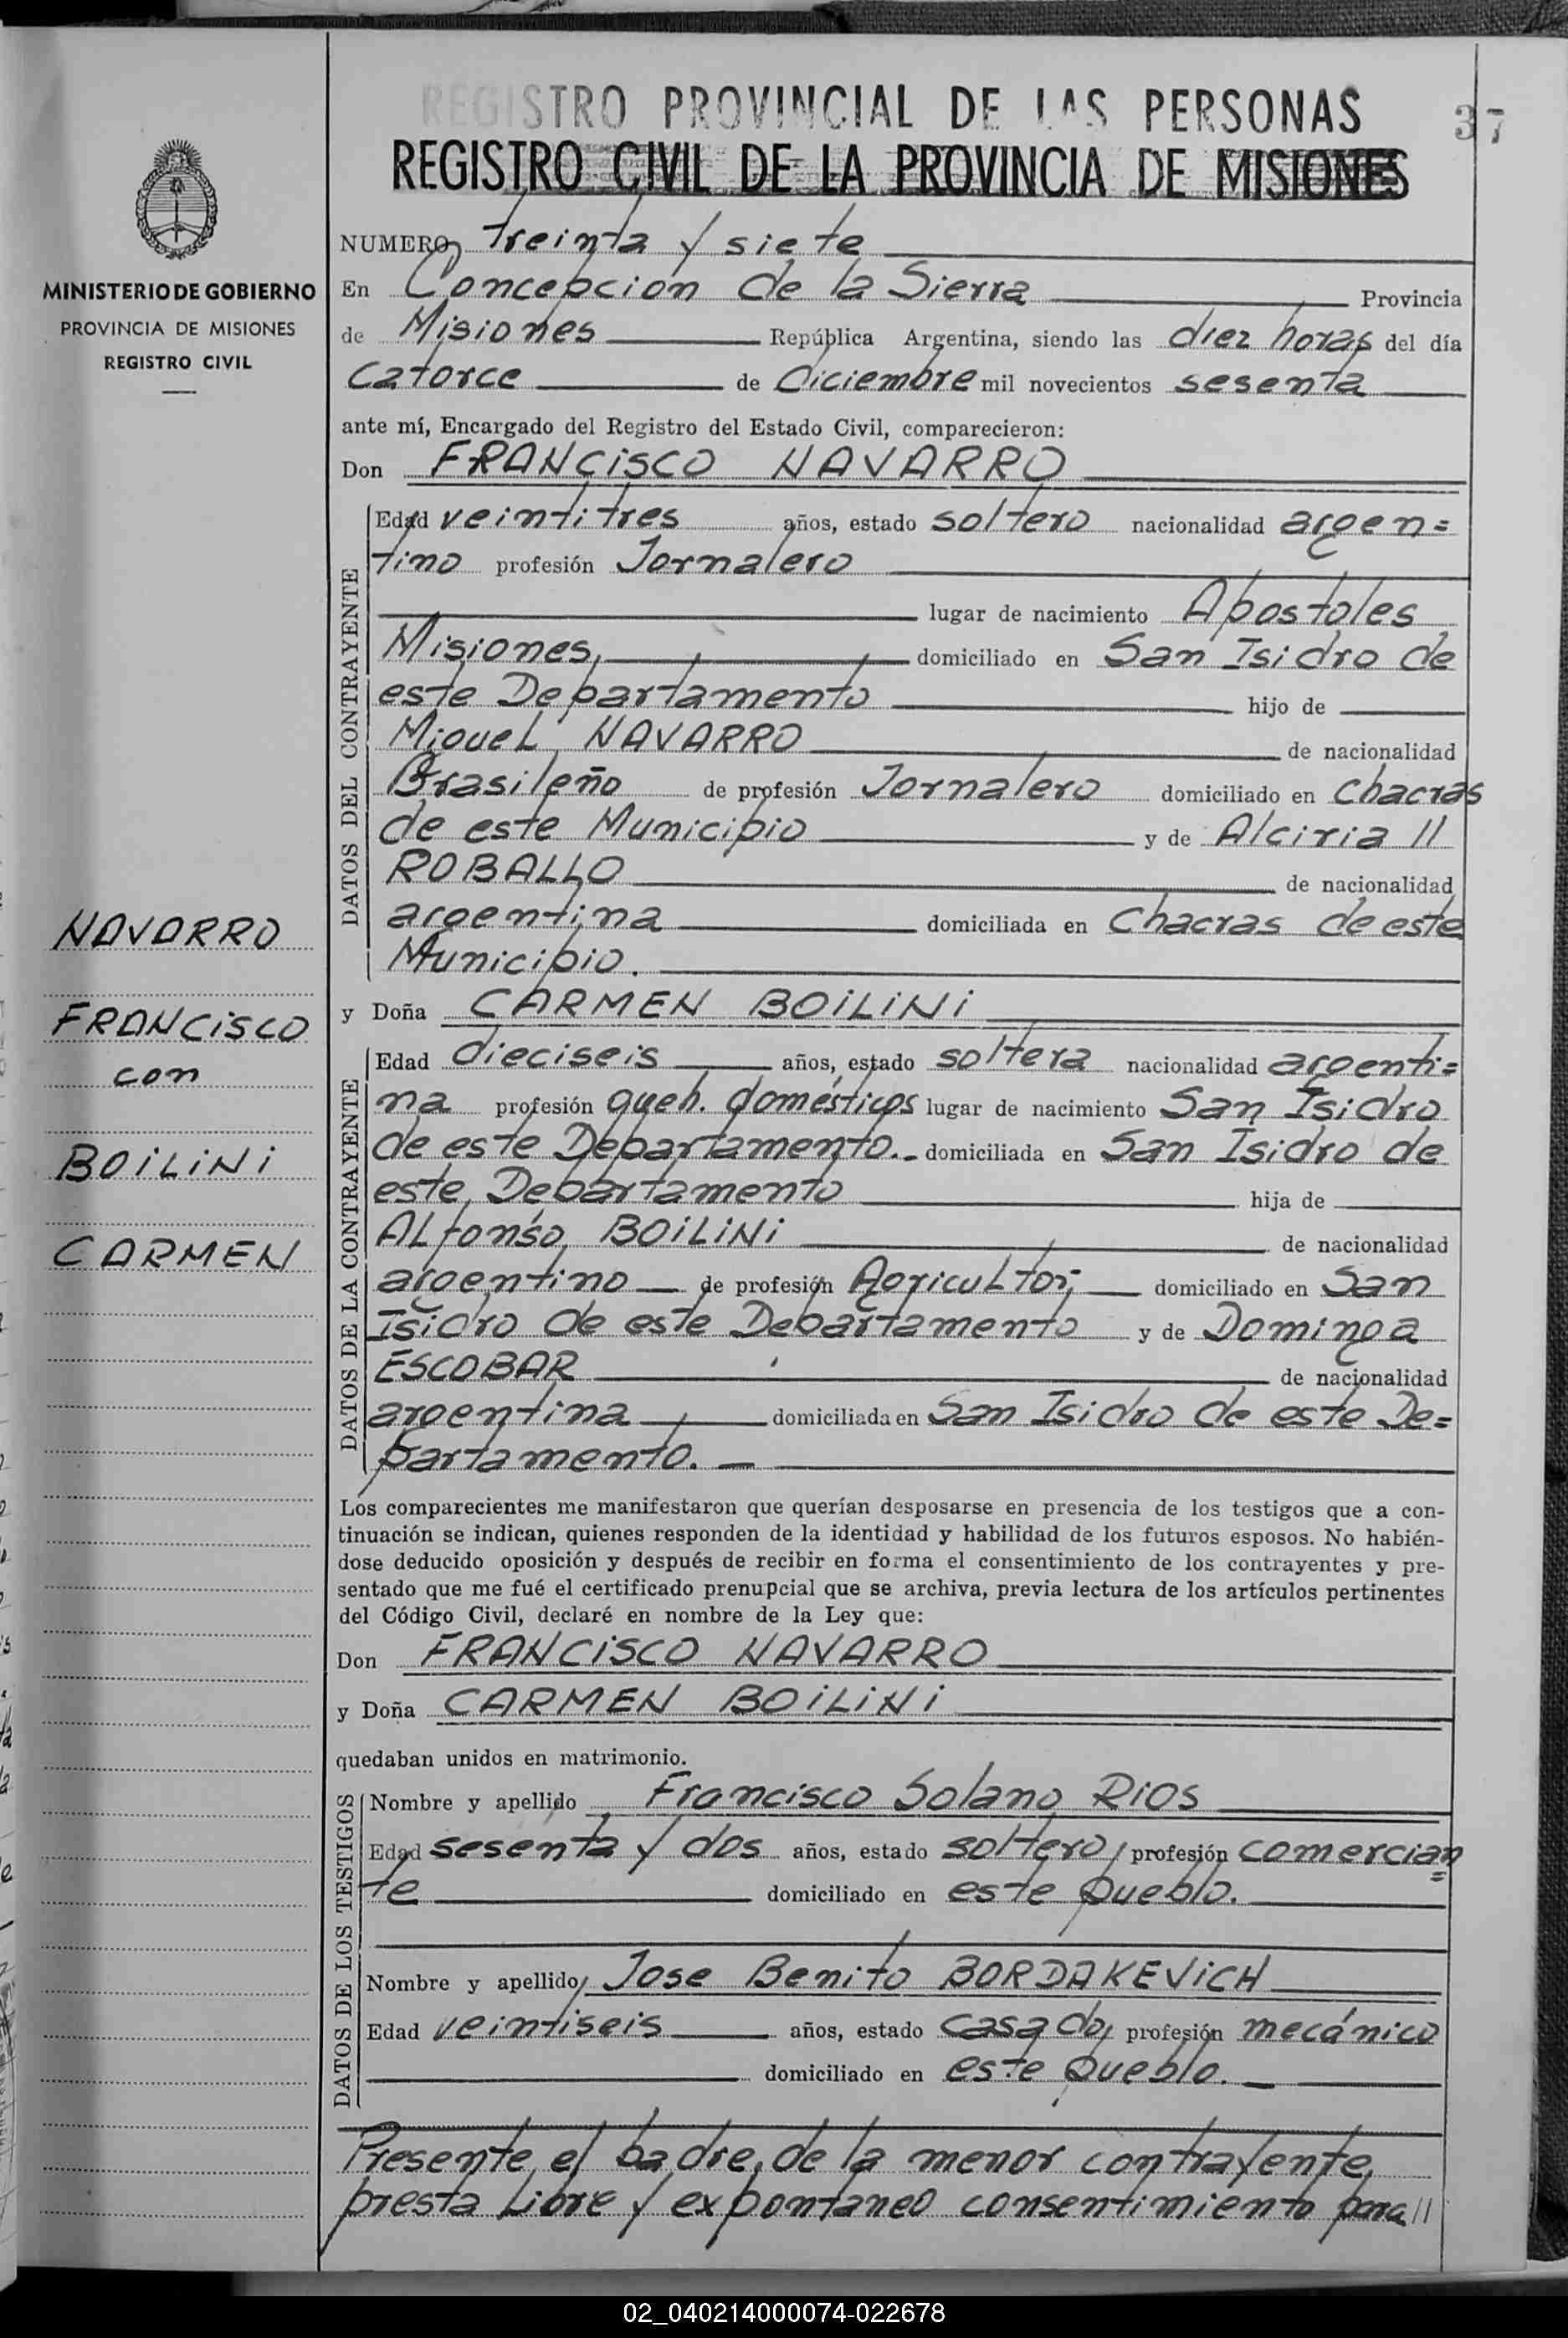 REGISTRO PROVINCIAL DE LAS PERSONAS
37
REGISTRO CIVIL DE LA PROVINCIA DE MISIONES
MINISTERIO DE GOBIERNO
PROVINCIA DE MISIONES
REGISTRO CIVIL
NAVARRO
FRANCISCO
con
BOILINI
CARMEN
NUMERO treinta y siete
En Concepcion de la Sierra Provincia
de Misiones República Argentina, siendo las diez horas del día
catorce de Diciembre mil novecientos sesenta
ante mí, Encargado del Registro del Estado Civil, comparecieron:
Don FRANCISCO NAVARRO
DATOS DEL CONTRAYENTE
Edad veintitres años, estado soltero nacionalidad argen=
tino profesión Jornalero
lugar de nacimiento Apostoles
Misiones, domiciliado en San Isidro de
este Departamento hijo de
Miguel NAVARRO de nacionalidad
Brasileño de profesión Jornalero domiciliado en Chacras
de este Municipio y de Alciria //
ROBALLO de nacionalidad
argentina domiciliada en Chacras de este
Municipio.
y Doña CARMEN BOILINI
DATOS DE LA CONTRAYENTE
Edad dieciseis años, estado soltera nacionalidad argenti=
na profesión queh. domésticos lugar de nacimiento San Isidro
de este Departamento.- domiciliada en San Isidro de
este Departamento hija de
Alfonso BOILINI de nacionalidad
argentino de profesión Agricultor, domiciliado en San
Isidro de este Departamento y de Dominga
ESCOBAR de nacionalidad
argentina domiciliada en San Isidro de este De=
partamento.-
Los comparecientes me manifestaron que querían desposarse en presencia de los testigos que a con-
tinuación se indican, quienes responden de la identidad y habilidad de los futuros esposos. No habién-
dose deducido oposición y después de recibir en forma el consentimiento de los contrayentes y pre-
sentado que me fué el certificado prenupcial que se archiva, previa lectura de los artículos pertinentes
del Código Civil, declaré en nombre de la Ley que:
Don FRANCISCO NAVARRO
y Doña CARMEN BOILINI
quedaban unidos en matrimonio.
DATOS DE LOS TESTIGOS
Nombre y apellido Francisco Solano RIOS
Edad sesenta y dos años, estado soltero, profesión comercian=
te domiciliado en este pueblo.
Nombre y apellido, Jose Benito BORDAKEVICH
Edad veintiseis años, estado casado, profesión mecánico
domiciliado en este pueblo.-
Presente el padre de la menor contrayente,
presta libre y expontaneo consentimiento para//
02_040214000074-022678